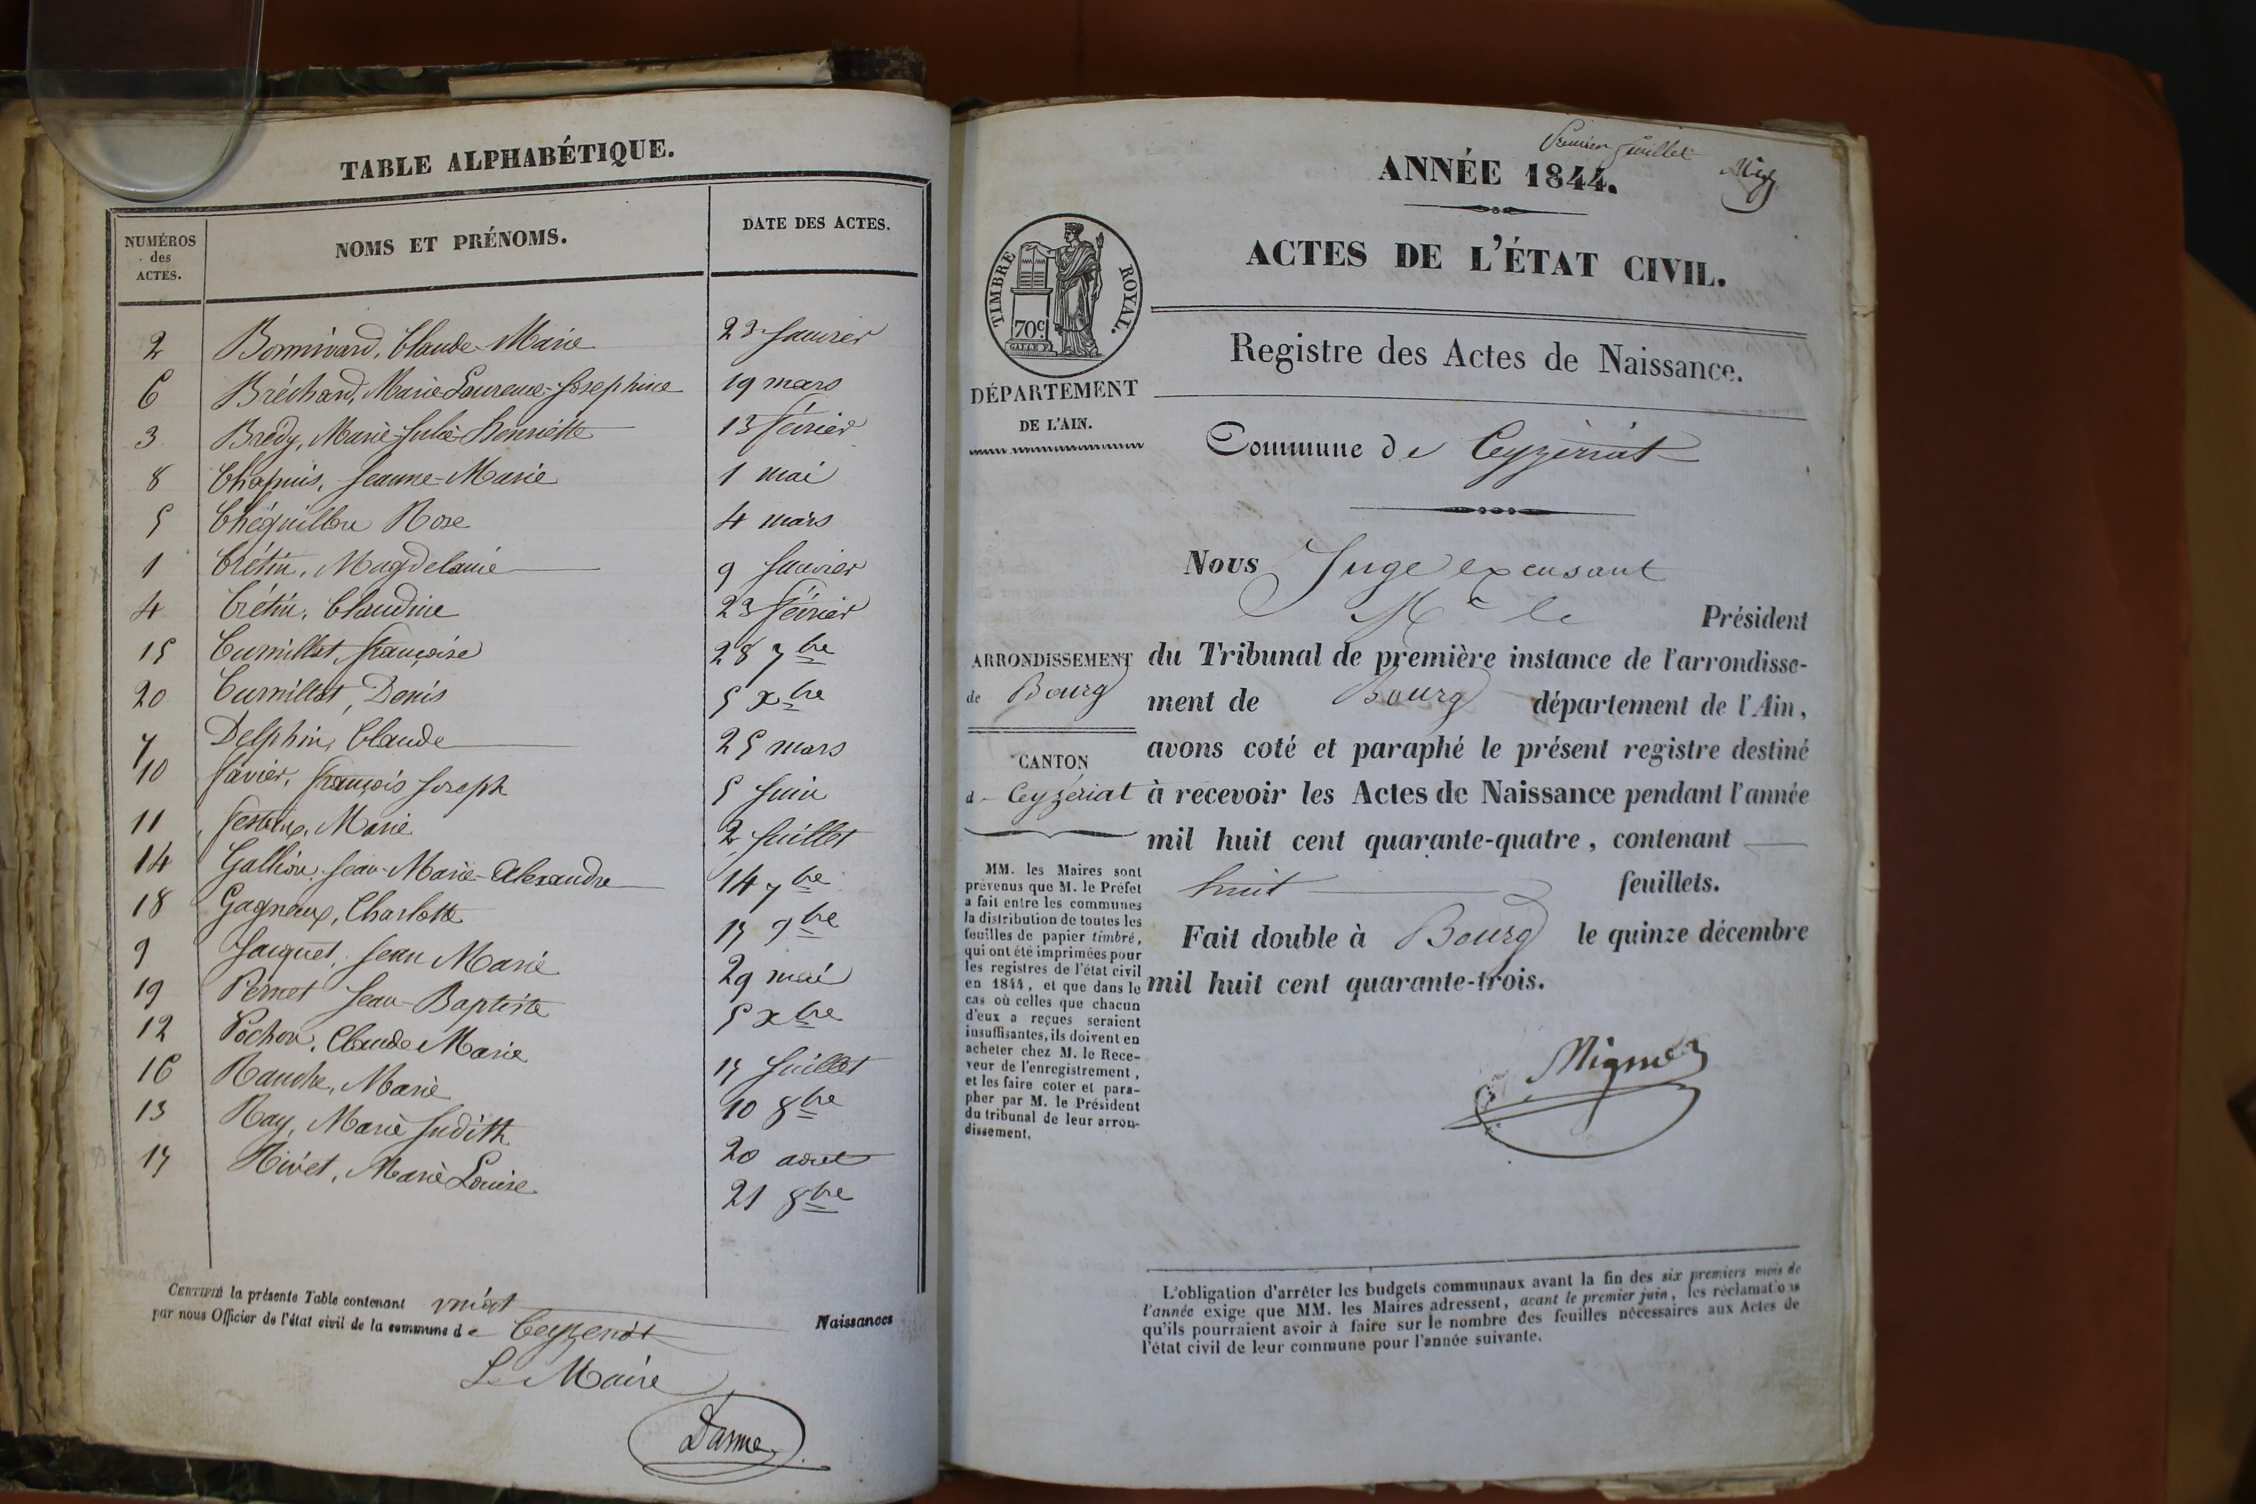 TABLE ALPHABÉTIQUE.
NUMÉROS des ACTES. NOMS ET PRÉNOMS. DATE DES ACTES.
2 Bonnivard, Claude-Marie 23 Janvier
6 Bréchard, Marie Laurence-Josephine 19 mars
3 Bredy, Marie-Julie-Henriette 13 février
8 Chapuis, Jeanne-Marie 1 mai
5 Chéquillon Rose 4 mars
1 Crétin, Magdelaine 9 Janvier
4 Crétin, Claudine 23 février
15 Curnillat, françoise 28 7bre
20 Curnillat, Denis 5 xbre
7 Delphin, Claude 25 mars
10 favier, françois Joseph 5 Juin
11 Marie 2 Juillet
14 Gallion, Jean-Marie-Alexandre 14 7bre
18 Gagneux, Charlotte 15 9bre
9 Jacquet, Jean Marie 29 mai
19 Pernet Jean-Baptiste 5 xbre
12 Pochon, Claude Marie 15 Juillet
16 Marie 10 8bre
13 Ray, Marie Judith 20 aout
17 Rivet, Marie Louise 21 8bre
CERTIFIÉ la présente Table contenant vingt Naissances
par nous Officier de l'état civil de la commune de Ceyzeriat
Le Maire
Darme
Premier feuillet
ANNÉE 1844.
ACTES DE L'ÉTAT CIVIL.
TIMBRE ROYAL.
70c
Registre des Actes de Naissance.
DÉPARTEMENT
DE L'AIN.
Commune de Ceyzériat
Nous Juge excusant
Mr le Président
ARRONDISSEMENT
de Bourg
CANTON
d- Ceyzériat
du Tribunal de première instance de l'arrondisse-
ment de Bourg département de l'Ain,
avons coté et paraphé le présent registre destiné
à recevoir les Actes de Naissance pendant l'année
mil huit cent quarante-quatre, contenant
huit feuillets.
Fait double à Bourg le quinze décembre
mil huit cent quarante-trois.
MM. les Maires sont
prévenus que M. le Préfet
a fait entre les communes
la distribution de toutes les
feuilles de papier timbré,
qui ont été imprimées pour
les registres de l'état civil
en 1844, et que dans le
cas où celles que chacun
d'eux a reçues seraient
insuffisantes, ils doivent en
acheter chez M. le Rece-
veur de l'enregistrement,
et les faire coter et para-
pher par M. le Président
du tribunal de leur arron-
dissement.
L'obligation d'arrêter les budgets communaux avant la fin des six premiers mois de
l'année exige que MM. les Maires adressent, avant le premier juin, les réclamations
qu'ils pourraient avoir à faire sur le nombre des feuilles nécessaires aux Actes de
l'état civil de leur commune pour l'année suivante.